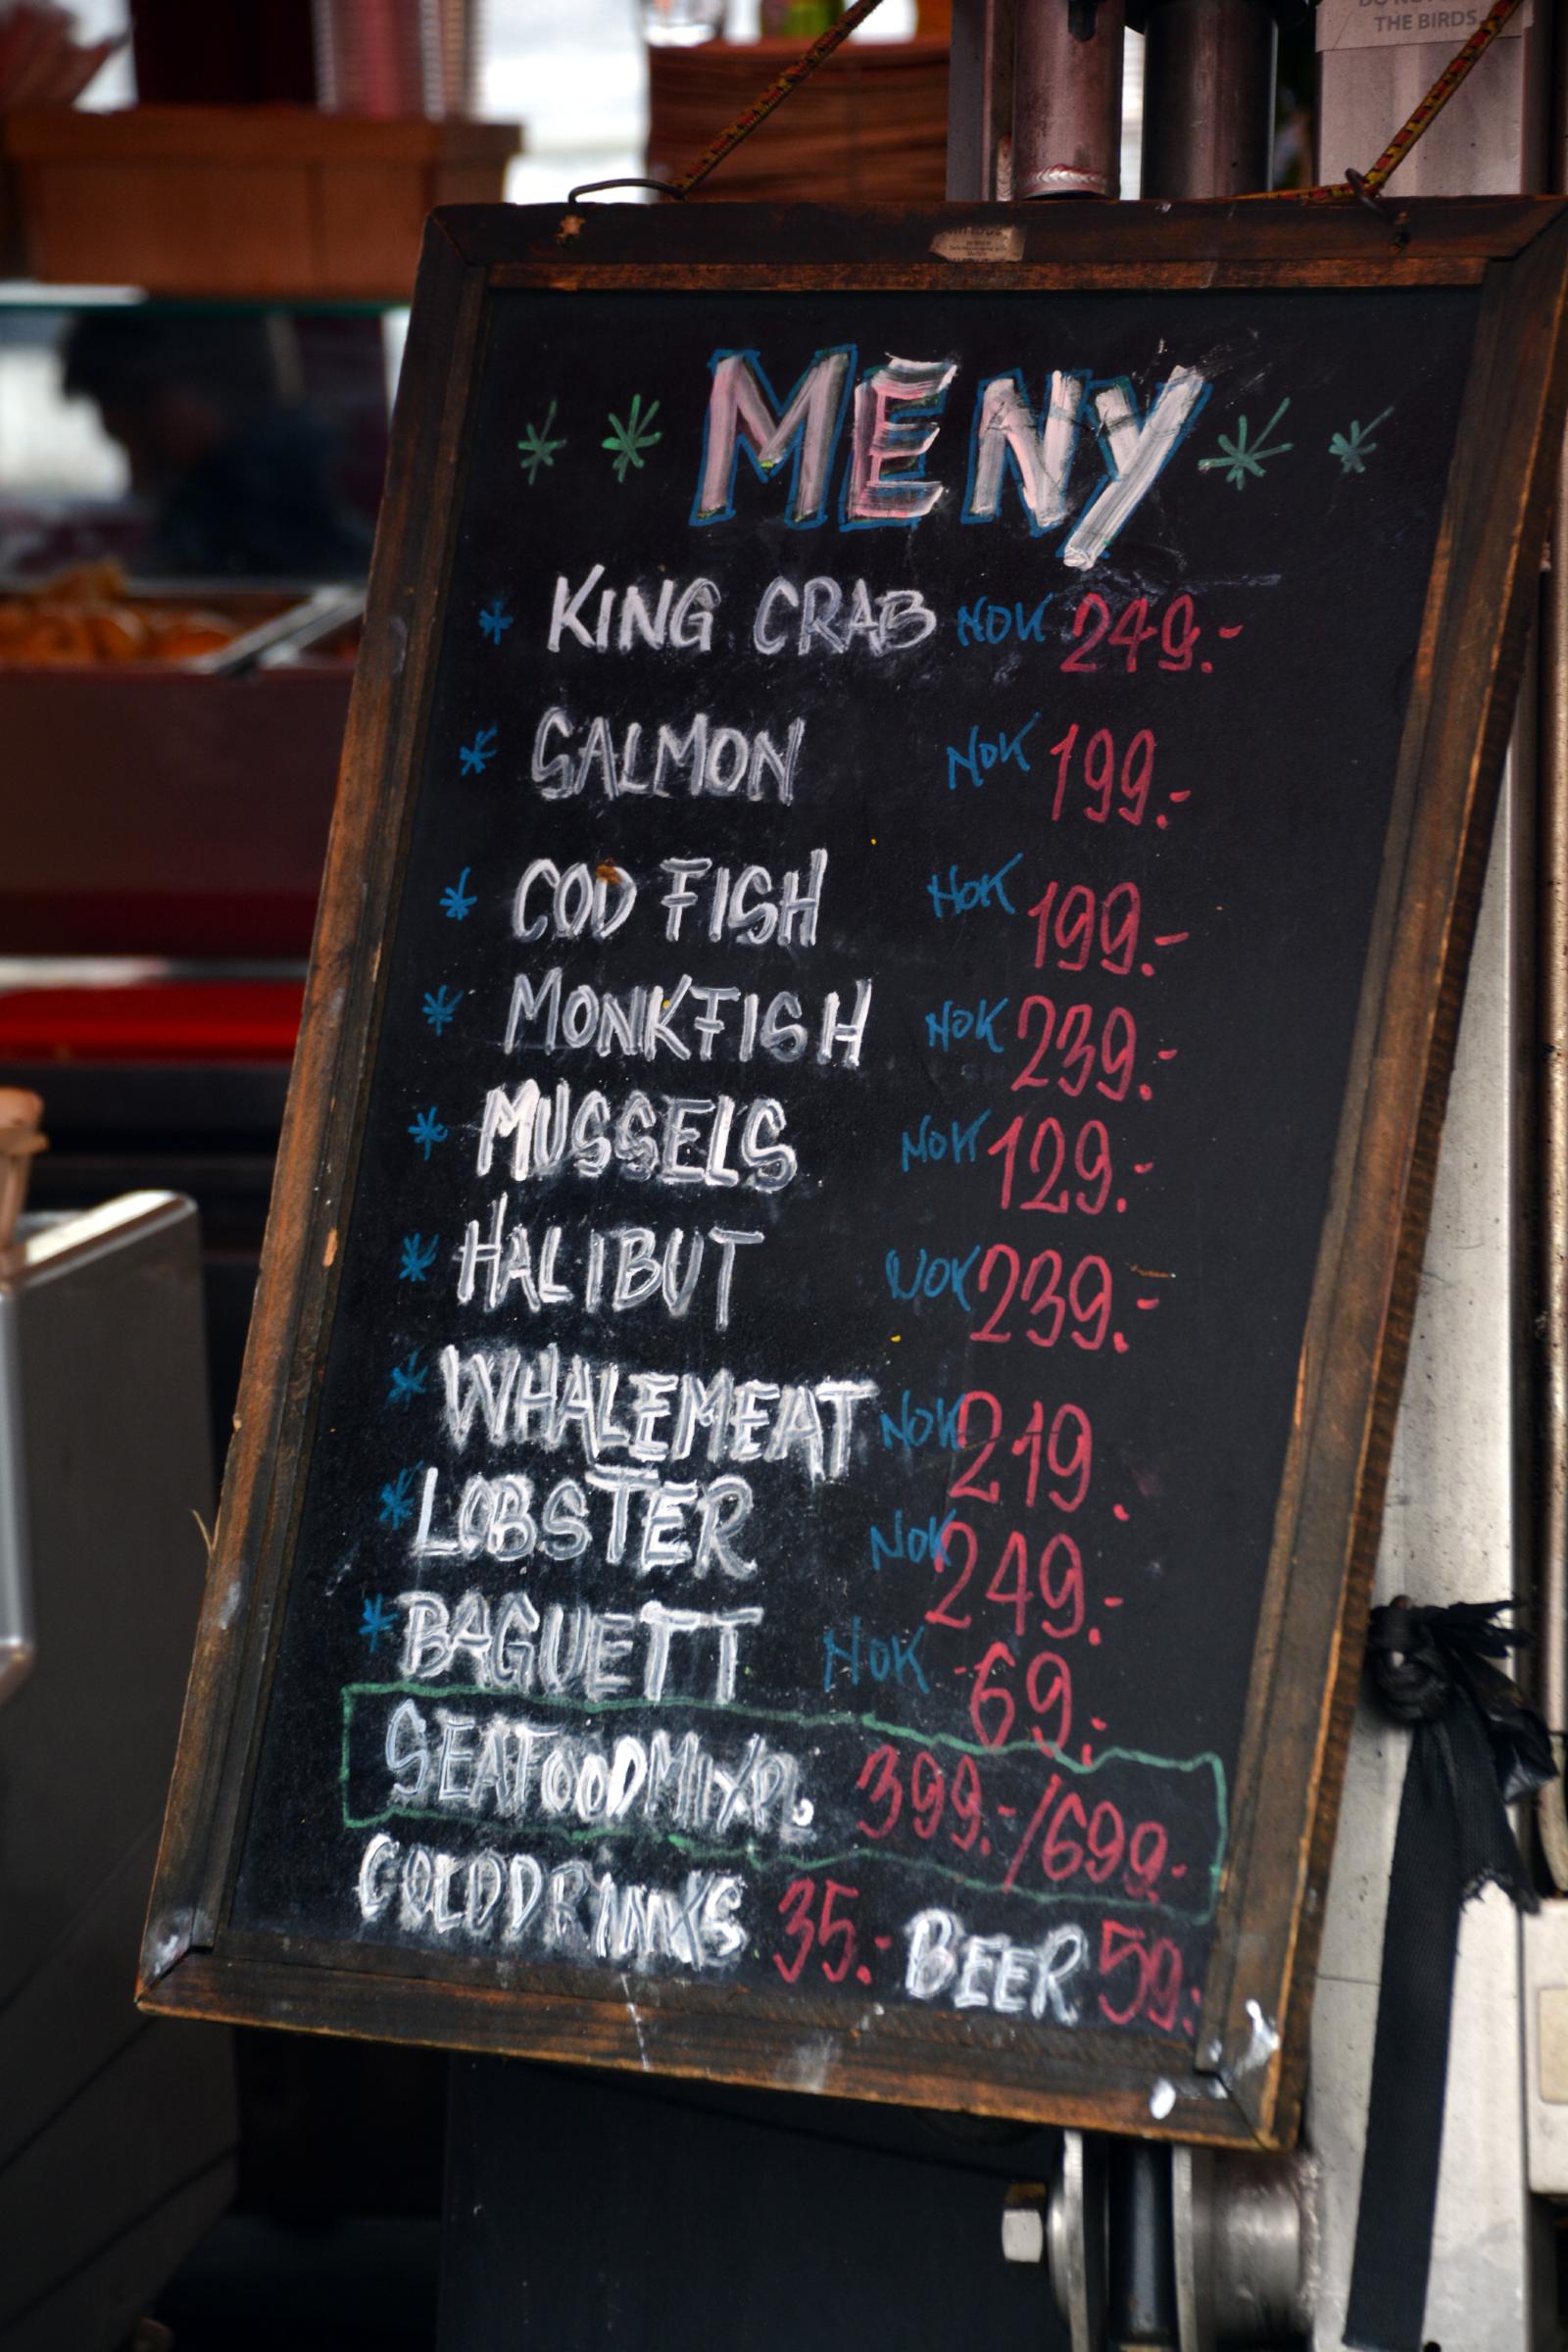 THE BIRDS
MENY
KING CRAB NOK 249.-
SALMON NOK 199.-
COD FISH NOK 199.-
MONKFISH NOK 239.-
MUSSELS NOK 129.-
HALIBUT NOK 239.-
WHALEMEAT NOK 219.
LOBSTER NOK 249.-
BAGUETT NOK 69.-
SEAFOODMIX 399.-/699.-
COLDDRINKS 35.- BEER 59.-